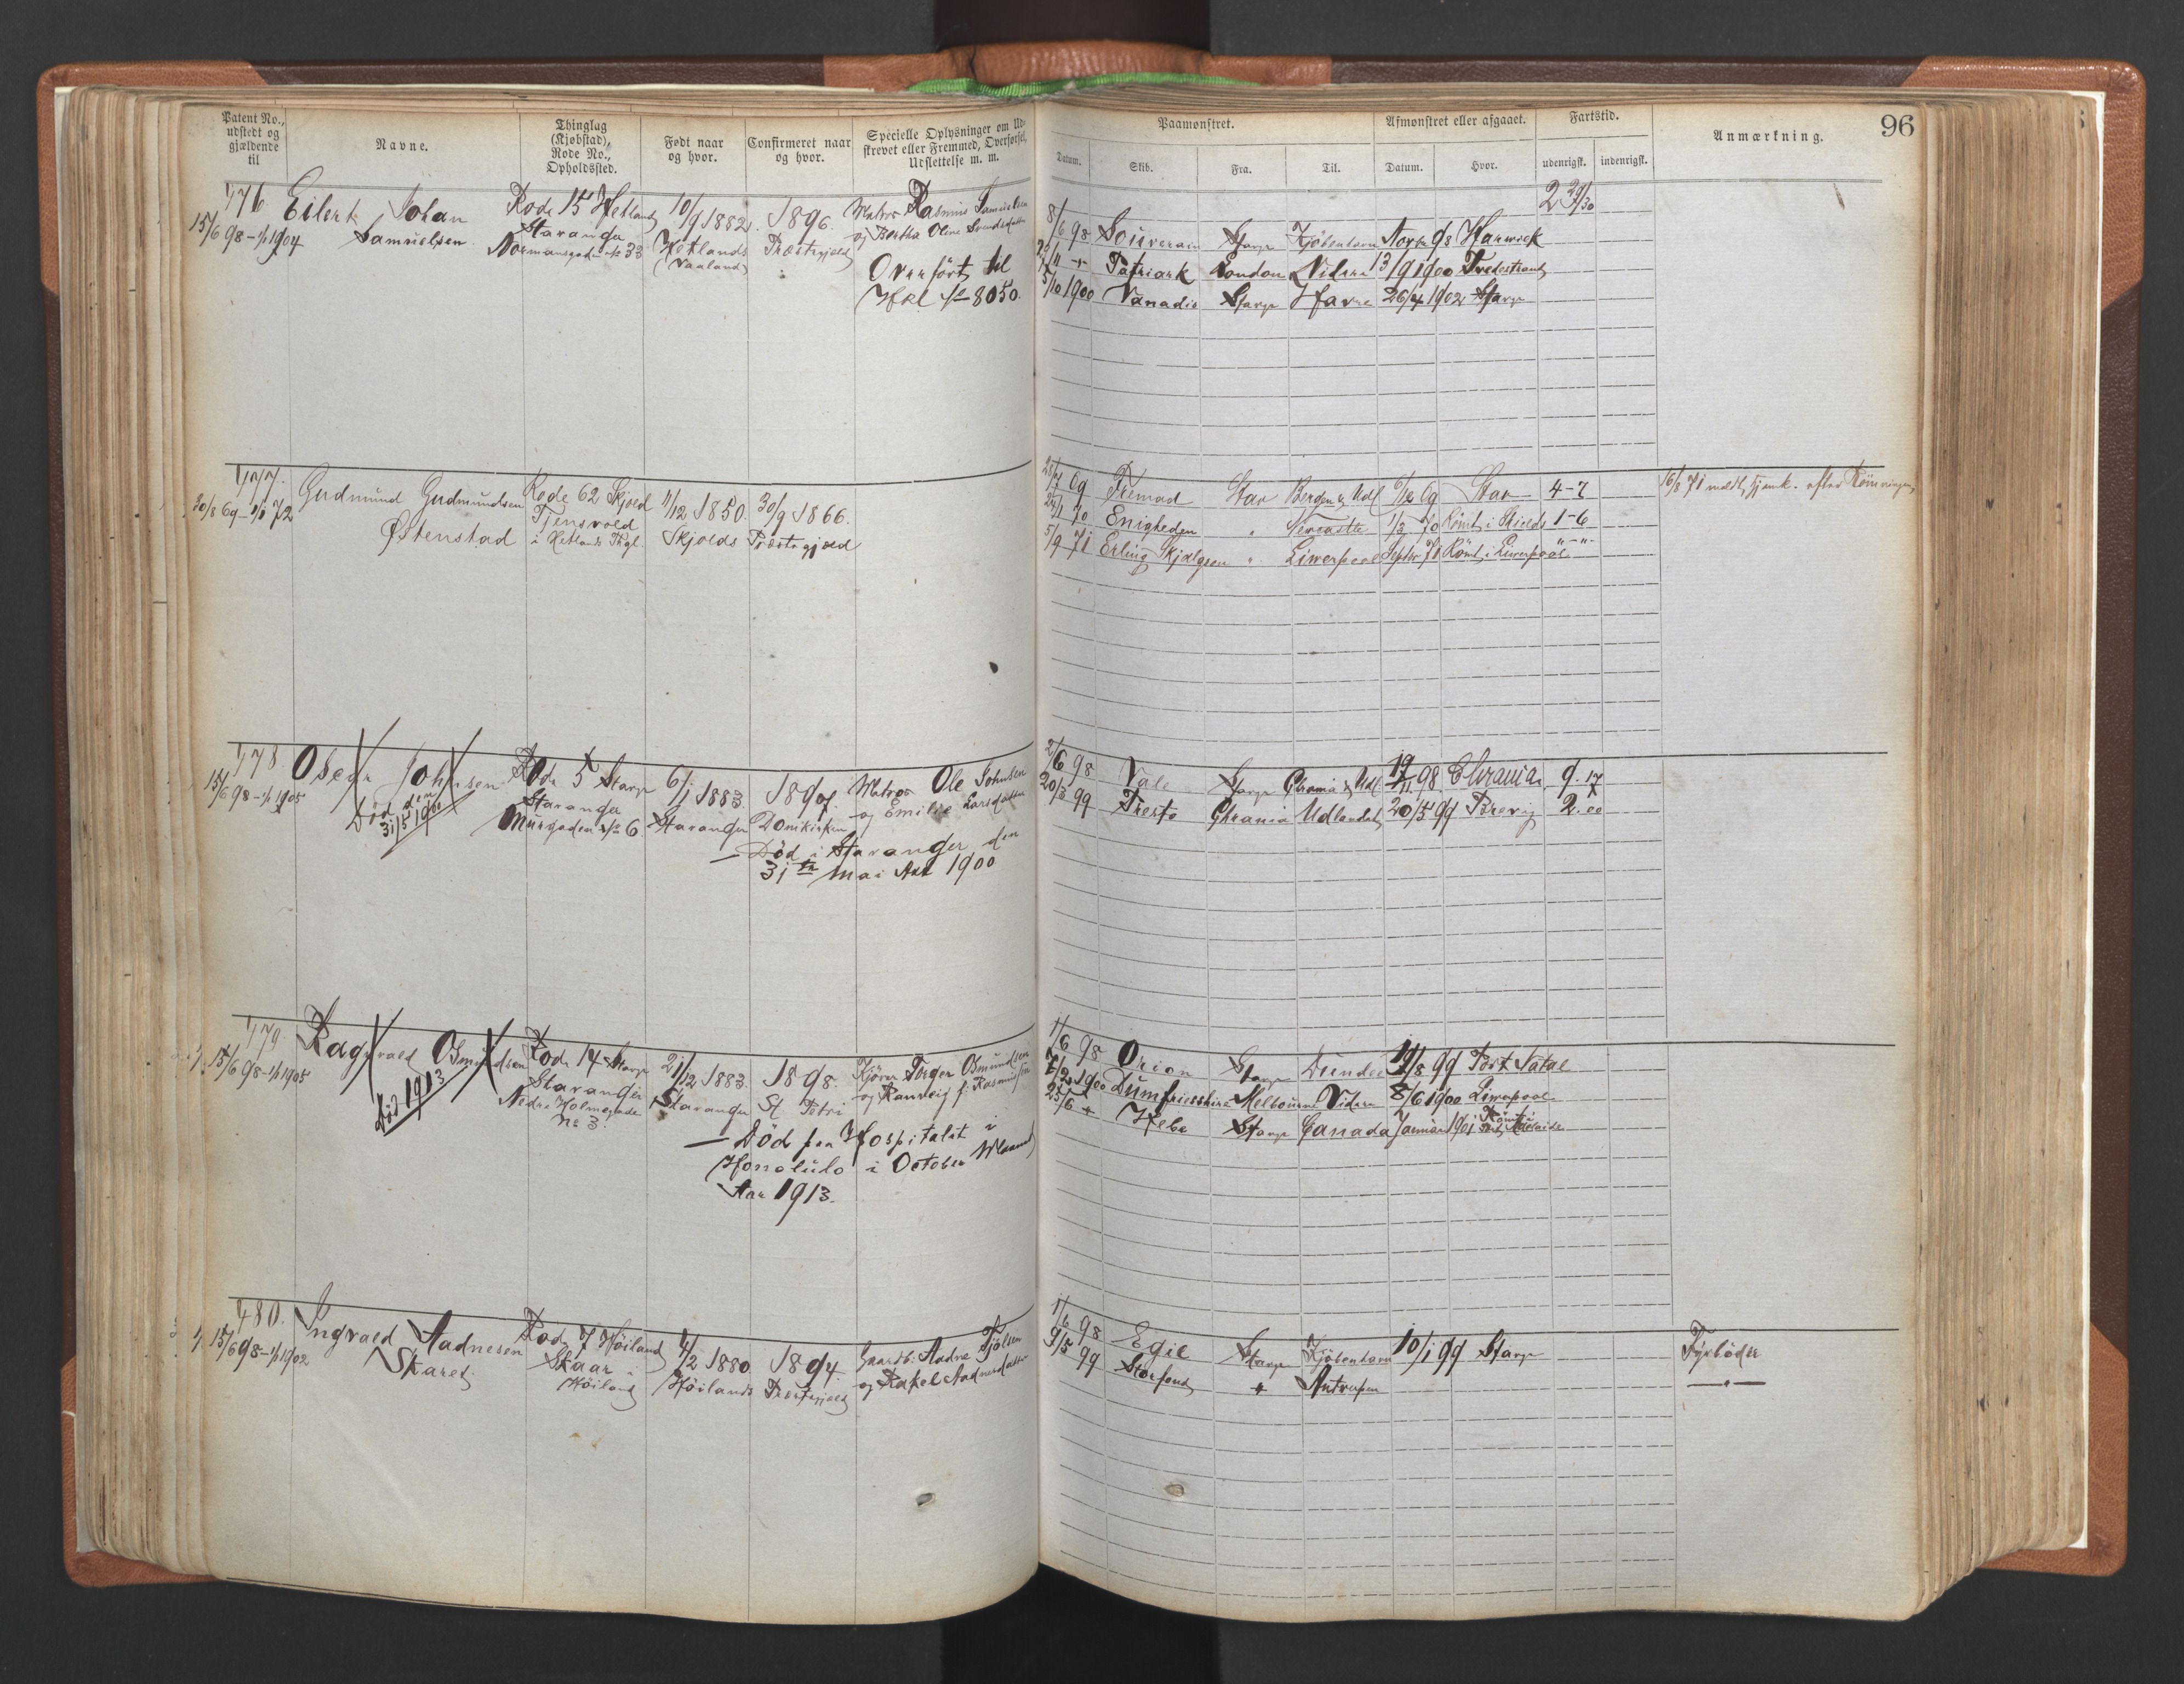 Patent No., udstedt og gjældende til
Navne.
Thinglag (Kjøbstad), Rode No., Opholdssted.
Født naar og hvor.
Confirmeret naar og hvor.
Specielle Oplysninger om Udskrevet eller Fremmed, Overførsel, Udslettelse m. m.
Paamønstret.
Afmønstret eller afgaaet.
Fartstid.
Anmærkning.
96
Datum.
Skib.
Fra.
Til.
Datum.
Hvor.
udenrigsk.
indenrigsk.
476
15/6 98 - 1/1 1904
Eilert Johan
Samuelsen
Rode 15 Hetland
Stavanger
Normansgade No 33
10/9 1882
Hetlands
(Vaaland)
1896.
Præstegjeld
Matros Rasmus Samuelsen
og Bertha Oline Svendsdatter
Overført til
Hfkl No 8050
2 29/30
8/6 98 Souverain Stavgr Kjøbenhavn Novbr 98 Harwick
/11 -"- Patriark London Videre 13/9 1900 Tvedestrand
5/10 1900 Vanadis Stavgr Havre 26/4 1902 Stavgr
477.
30/8 69 - 1/1 72
Gudmund Gudmundsen
Østenstad
Rode 62 Skjold
Tjensvold
i Hetlands Thgl.
11/12 1850.
Skjolds
30/9 1866.
Præstegjeld
28/7 69 Fremad Stav Bergen & Udl 6/12 69 Stav 4-7
16/8 71 meldt hjemk. efter Rømningen
24/1 70 Enigheden " Newcastle 1/3 70 Rømt i Shields 1-6
5/9 71 Erling Skjalgsen " Liverpool Septbr 71 Rømt i Liverpool "-"-
478.
15/6 98 - 1/1 1905
Oscar Johnsen
Død den
31/5 1900
Rode 5 Stavgr
Stavanger
Murgaden No 6
6/1 1883.
Stavanger
1897.
Domkirken
Matros Ole Johnsen
og Emilie Larsdatter
- Død i Stavanger den
31te Mai Aar 1900
2/6 98 Vale Stavgr Chrania & Udl 19/11 98 Chrania 9.17
20/3 99 Presto Chrania Udlandet 20/5 99 Brevig 2.00
479.
15/6 98 - 1/1 1905
Ragnvald Osmundsen
Død 1913
Rode 14 Stavgr
Stavanger
Nedre Holmegade
No 3
21/12 1883.
Stavanger
1898.
St Petri
Kjører Torger Osmundsen
og Ranveig f. Rasmussen
- Død paa Hospitalet i
Honolulo i October Maaned
Aar 1913.
1/6 98 Orion Stavgr Dundee 19/8 99 Port Natal
7/2 1900 Dumfriesshire Melbourne Videre 8/6 1900 Liverpool
25/6 " Hebe Stavgr Canada Januar 1901 Rømt i Adelaide
480.
15/6 98 - 1/1 1902
Ingvald Aadnesen
Skaret
Rode 7 Høiland
Skaar i
Høiland
4/2 1880
Høilands
1894.
Præstegjeld
Gaardb. Aadne Fjølsen
og Rakel Aadnesdatter
1/6 98 Egil Stavgr Kjøbenhavn 10/1 99 Stavgr Fyrbøder
9/5 99 Storfond " Antwerpen -"-